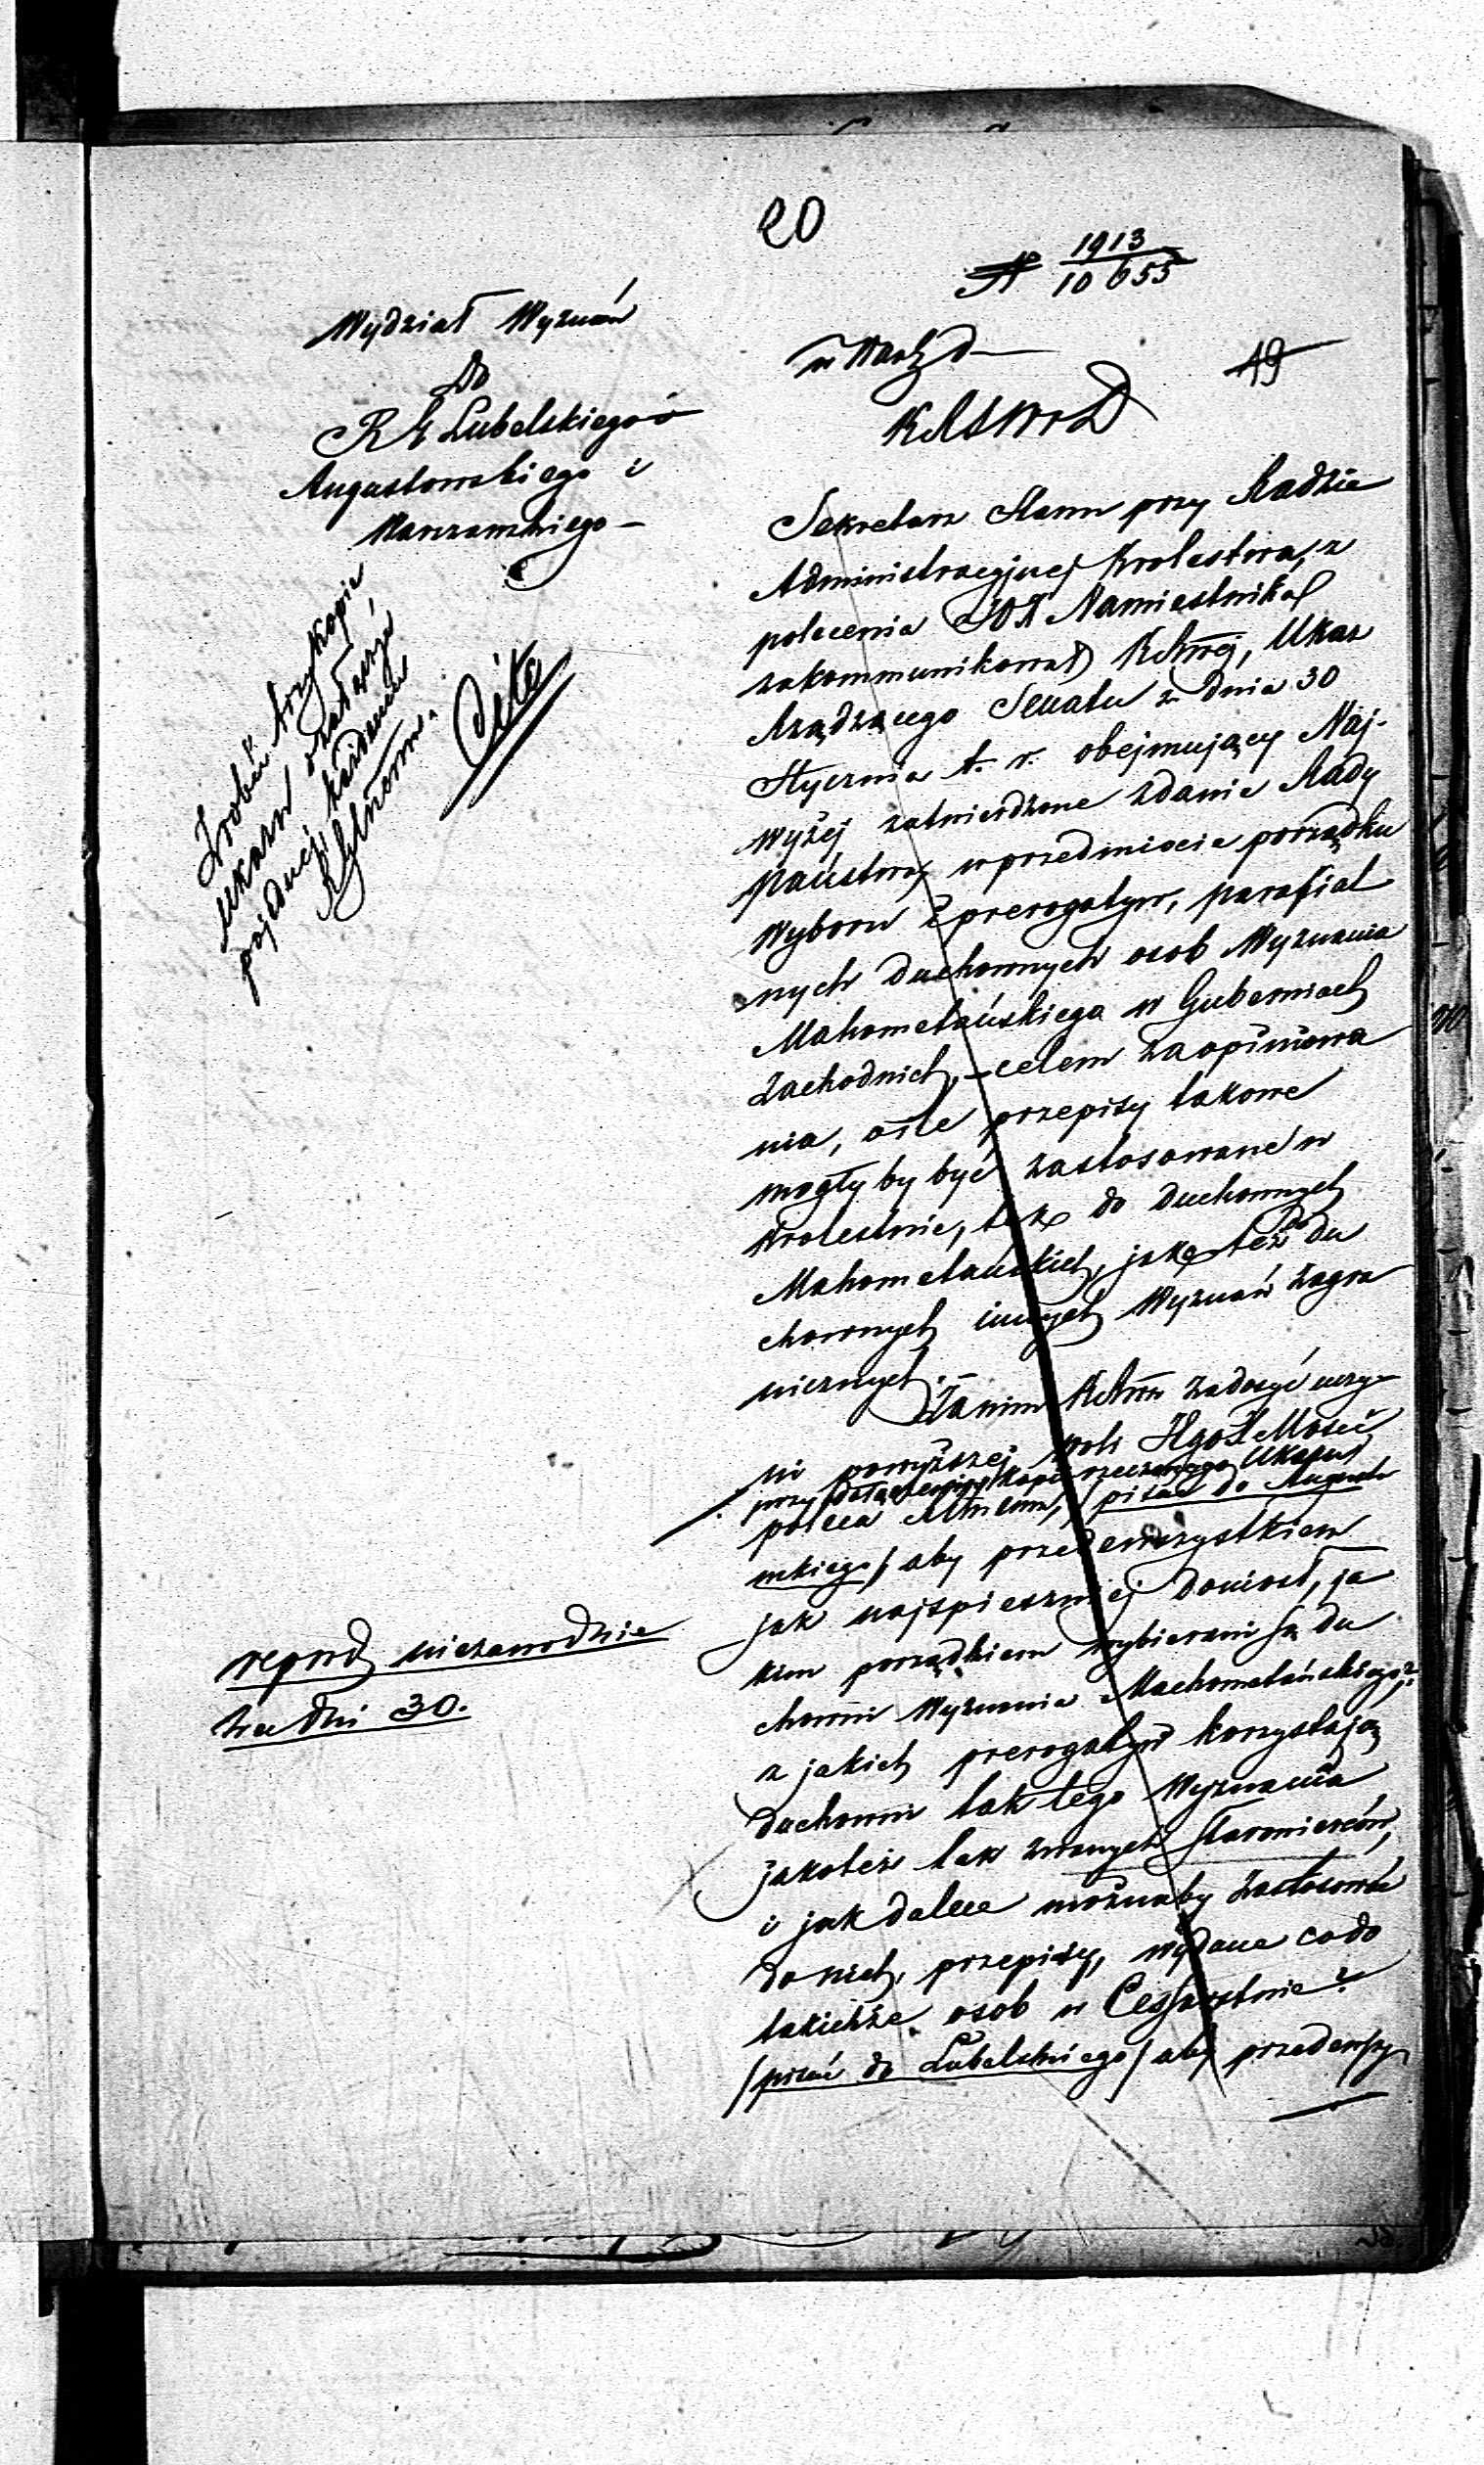 20
№ 1913
10655
19
Wydział Wyznań
do
R G Lubelskiego
Augustowskiego i
Warszawskiego –
Zrobić trzy kopie
Ukazu i załączyć
po jednej każdemu
Cito
w Warsz d
KRSWiD
Sekretarz Stanu przy Radzie
Administracyjnej Krolestwa, z
polecenia JOX Namiestnika
zakommunikował KRrwej, Ukaz
Rządzącego Senatu z dnia 30
Stycznia t. r. obejmujący Naj-
wyżej zatwierdzone zdanie Rady
Państwa, w przedmiocie porządku
Wyboru i prerogatyw, parafial
nych duchownych osob Wyznania
Mahometańskiego w Guberniach
Zachodnich, – celem zaopiniowa
nia, o ile przepisy takowe
mogły by być zastosowane w
Krolestwie, tak do duchownych
Mahometańskich, jako też do du
chownych innych Wyznań zagra
nicznych. –
Zanim KRrwa zadosyć uczy
ni powyższej woli JgoXMości
przy dołączeniu kopii rzeczonego Ukazu
poleca RGnemu, / pisać do Augusto
wskiego / aby przedewszystkiem
jak najspieszniej doniosł, ja
kim porządkiem wybierani są du
chowni Wyznania Machometańskiego?
z jakich prerogatyw korzystają
duchowni tak tego Wyznania
jakoteż tak zwanych Starowierców,
i jak dalece możnaby zastosować
do nich, przepisy, wydane co do
takichże osob w Cesarstwie?
/ pisać do Lubelskiego / aby przedewszy
repnd niezawodnie
za dni 30.